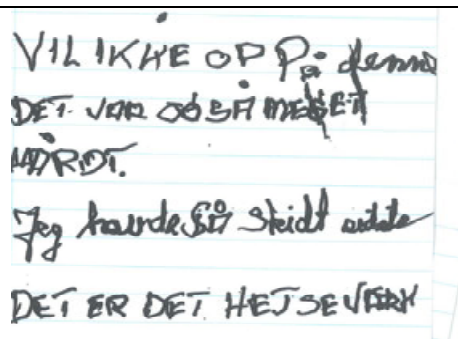 VIL IKKE OPP på denne
DET VAR OGSÅ MEGET
HÅRDT.
Jeg havde så Steidt
DET ER DET HETSEVÆRK